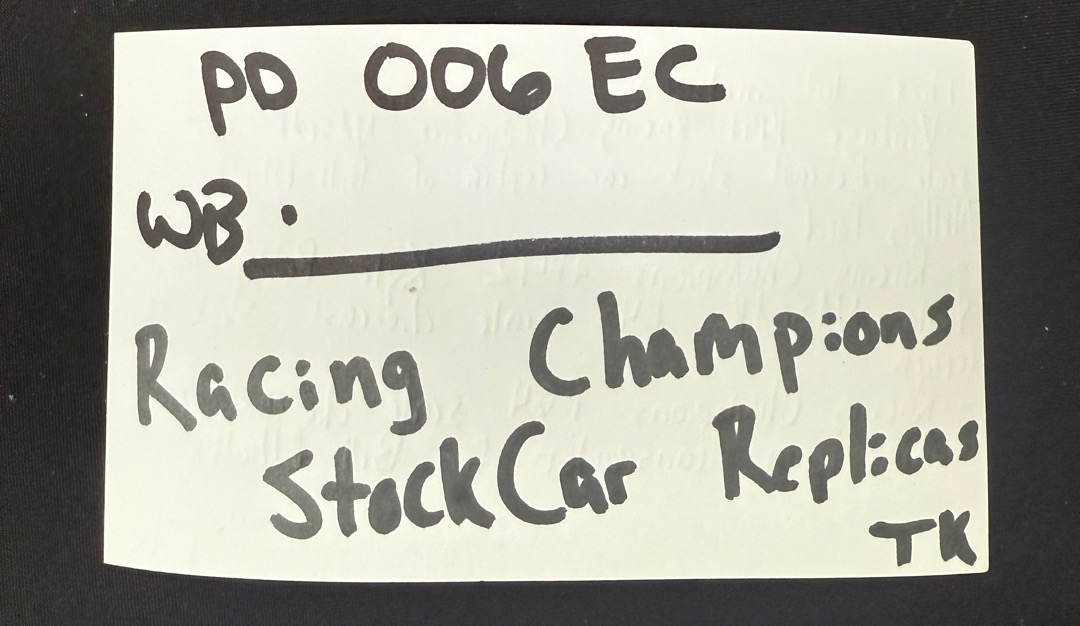 PD 006 EC
WB. ____________
Racing Champions
Stock Car Replicas
TK